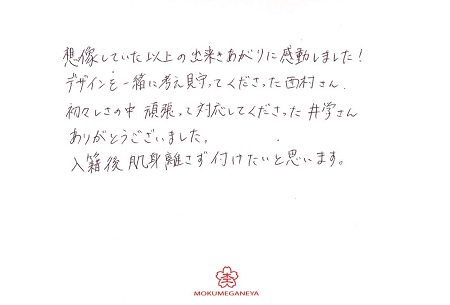 想像していた以上の出来きあがりに感動しました!
デザインを一緒に考え見守ってくださった西村さん、
初々しさの中 頑張って対応してくださった 井学さん
ありがとうございました。
入籍後 肌身離さず付けたいと思います。
MOKUMEGANEYA